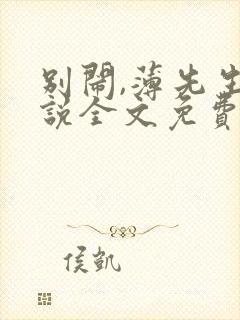 別鬧,薄先生
說全文免費
侯凱